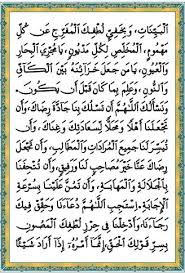 الْبَيِّنَاتِ، وَبِخَفِيِّ لُطْفِكَ الْمُفَرِّجِ عَنْ كُلِّ
مَهْمُومٍ، الْمُخَلِّصِ لِكُلِّ مَدْيُونٍ، يَا مُجْرِيَ الْبِحَارِ
وَالْعُيُونِ، يَا مَنْ جَعَلَ خَزَائِنَهُ بَيْنَ الْكَافِ
وَالنُّونِ، وَعَلِمَ بِمَا كَانَ قَبْلَ أَنْ يَكُونَ.
وَنَسْأَلُكَ اللَّهُمَّ أَنْ تَسْلُكَ بِنَا جَادَّةَ رِضَاكَ، وَأَنْ
تَجْعَلَنَا أَهْلًا وَمَحَلًّا لِسَعَادَتِكَ وَغِنَاكَ، وَأَنْ
تُيَسِّرَ لَنَا جَمِيعَ الْمُرَادَاتِ وَالْمَطَالِبِ، وَأَنْ تَجْعَلَ
رِضَاكَ عَنَّا خَيْرَ مُصَاحِبٍ لَنَا وَرَفِيقٍ، وَأَنْ تُتْحِفَنَا
بِالْجَلَالَةِ وَالْمَهَابَةِ، وَأَنْ تَمُنَّ عَلَيْنَا بِسُرْعَةِ
الْإِجَابَةِ. اِسْتَجِبِ اللَّهُمَّ دُعَاءَنَا وَحَقِّقْ فِيكَ
رَجَاءَنَا، وَأَدْخِلْنَا فِي حِرْزِ لُطْفِكَ الْمَصُونِ
بِسِرِّ قَوْلِكَ الْحَقِّ: إِنَّمَا أَمْرُهُ، إِذَا أَرَادَ شَيْئًا